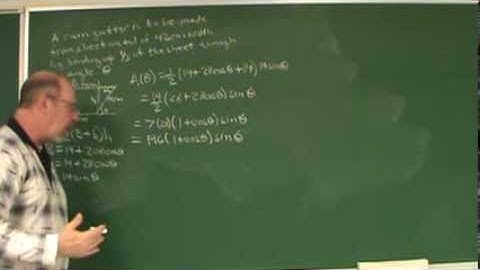 A rain gutter is to be made
from sheet metal of 42cm width
by bending up 1/3 of the sheet through
angle θ
A(θ) = 1/2 (14+28cosθ+14) 14sinθ
= 14/2 (28+28cosθ) sinθ
= 7( )(1+cosθ) sinθ
= 196(1+cosθ) sinθ
+b)h
= 14+2·14cosθ
= 14+28cosθ
= 14sinθ